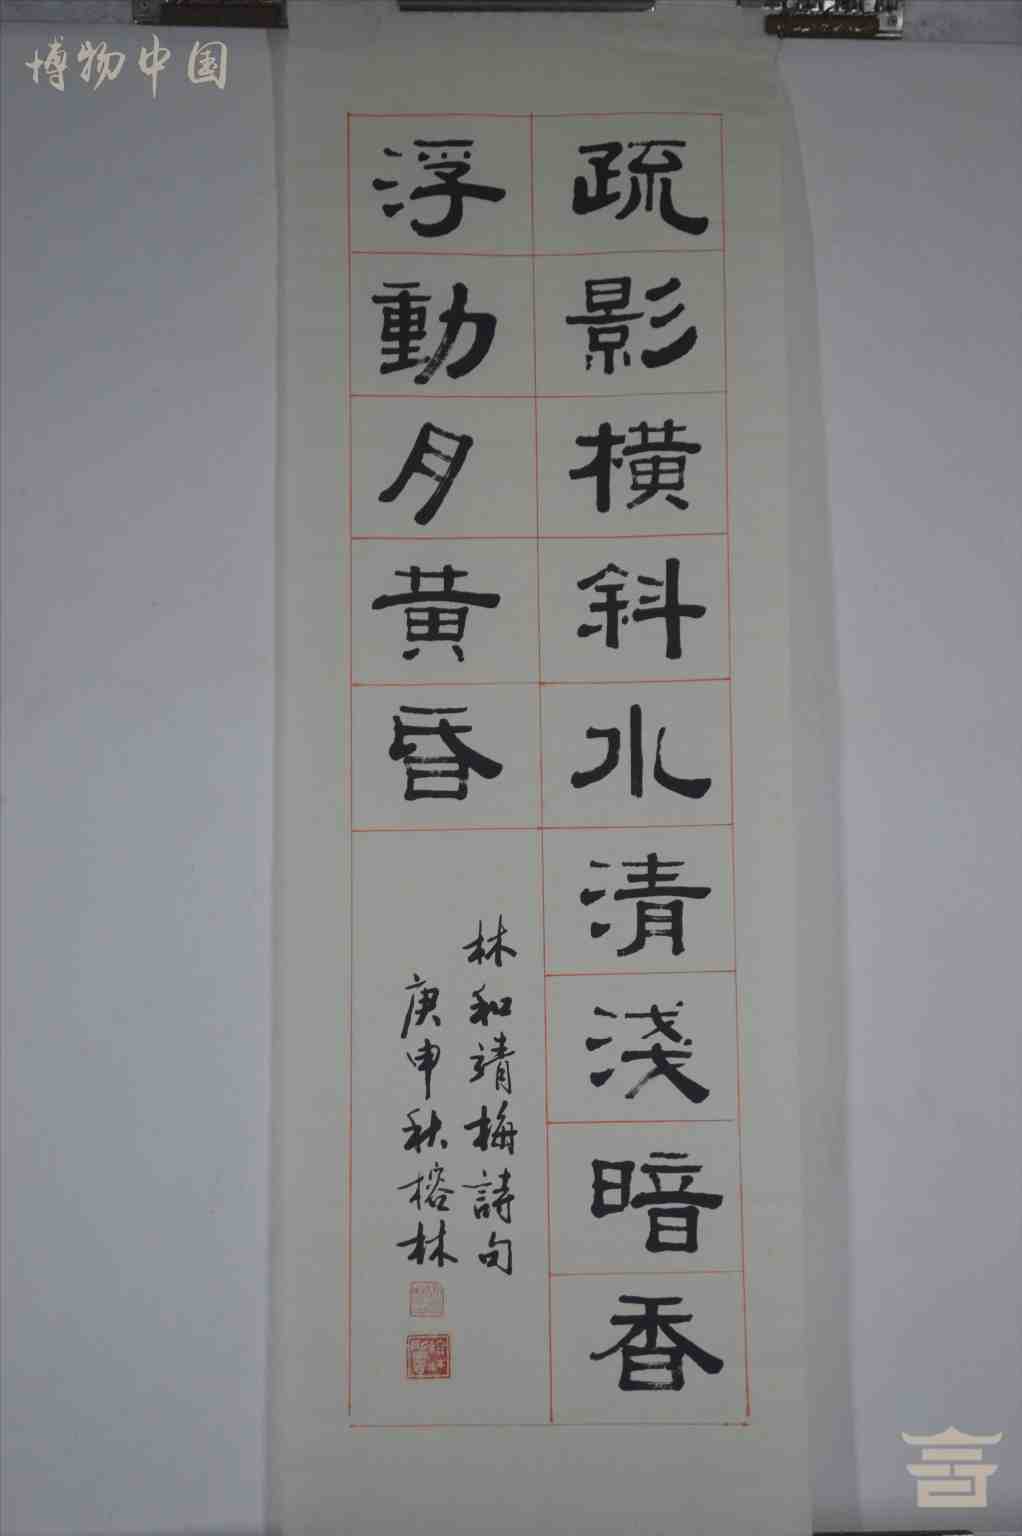 博物中国
疏影橫斜水清淺暗香
浮動月黃昏
林和靖梅詩句
庚申秋榕林